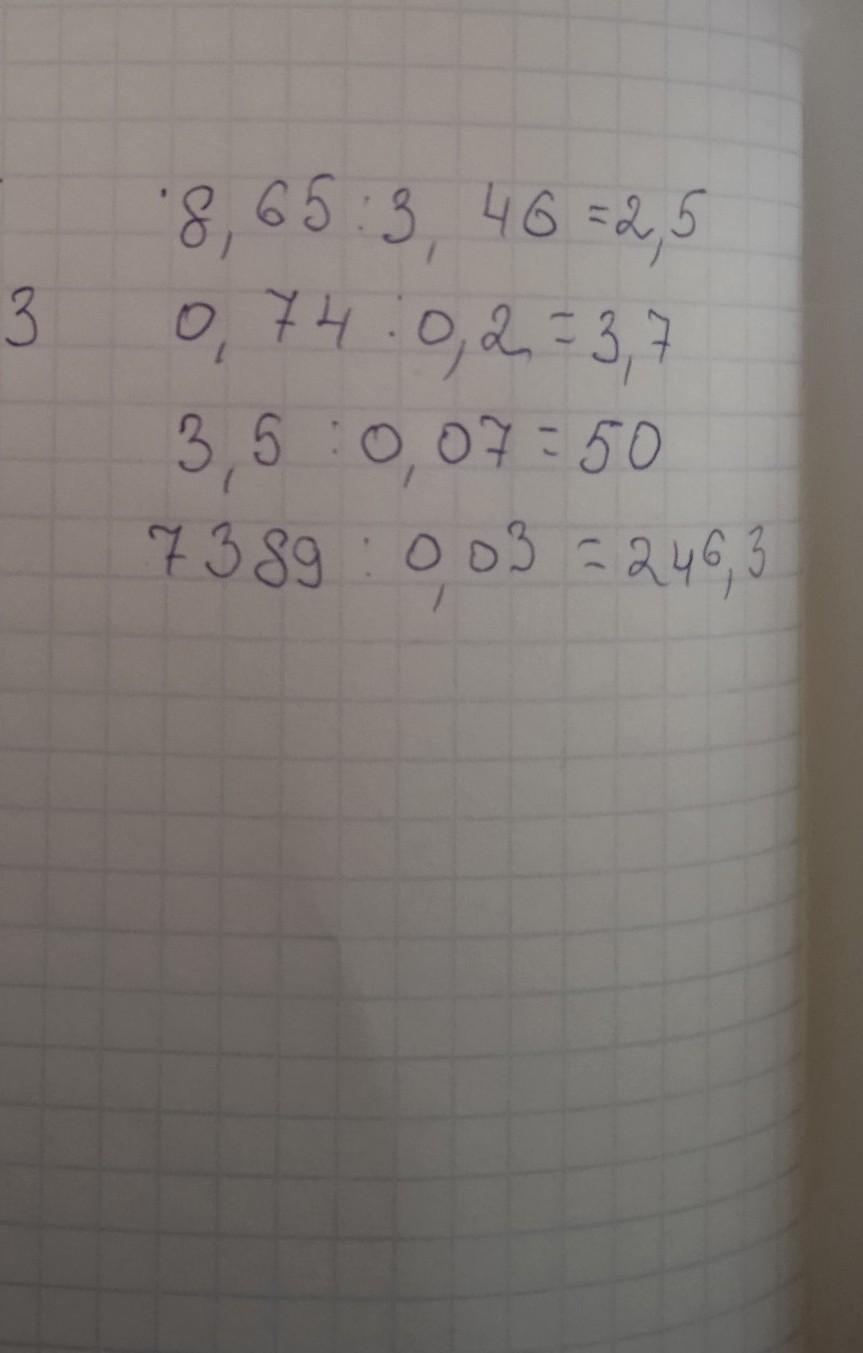 8,65 : 3,46 = 2,5
3 0,74 : 0,2 = 3,7
3,5 : 0,07 = 50
7389 : 0,03 = 246,3